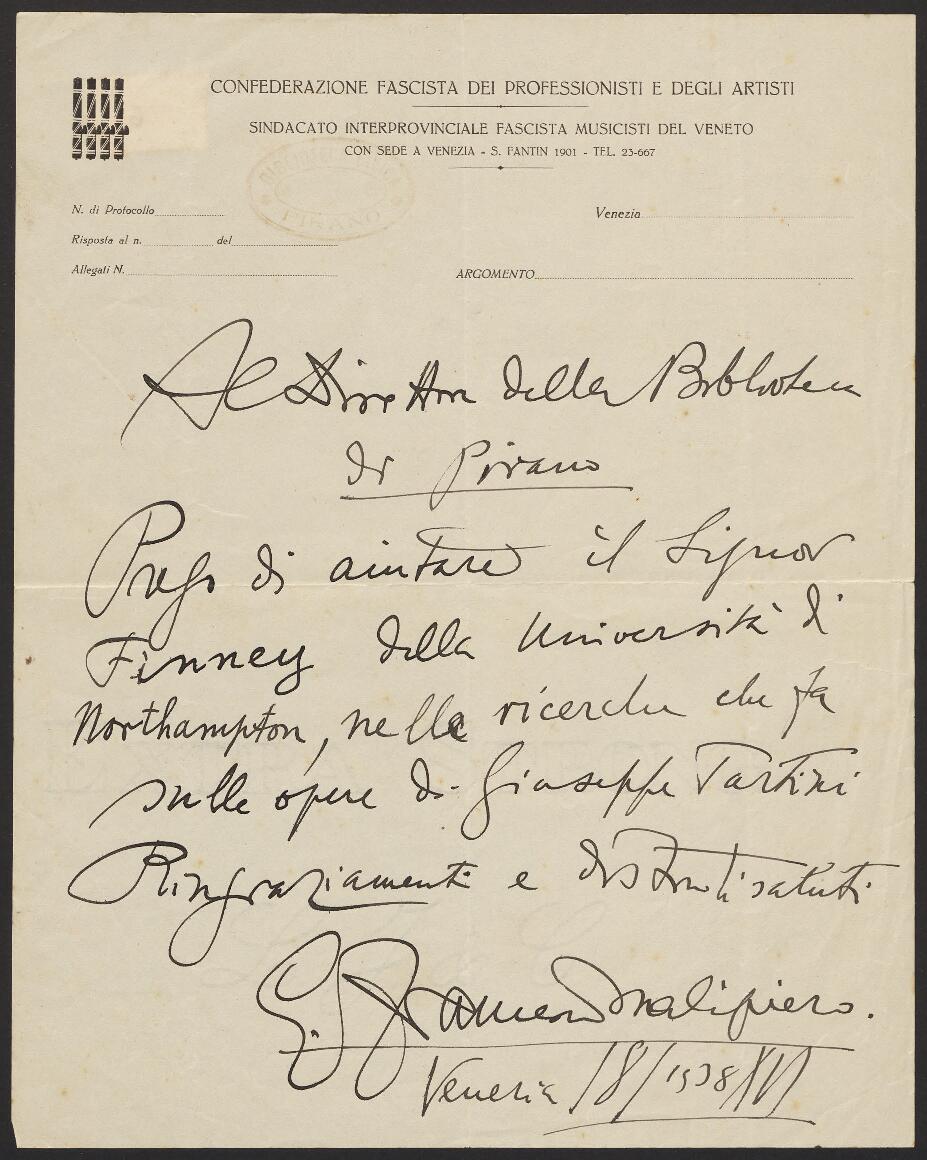 CONFEDERAZIONE FASCISTA DEI PROFESSIONISTI E DEGLI ARTISTI
SINDACATO INTERPROVINCIALE FASCISTA MUSICISTI DEL VENETO
CON SEDE A VENEZIA - S. FANTIN 1901 - TEL. 23-667
PIRANO
N. di Protocollo
Venezia
Risposta al n. del
Allegati N.
ARGOMENTO
Al Direttore della Biblioteca
di Pirano
Prego di aiutare il Signor
Finney della Università di
Northampton, nelle ricerche che fa
sulle opere di Giuseppe Tartini
Ringraziamenti e distinti saluti
G. Francesco Malipiero.
Venezia /8/1938 XVI